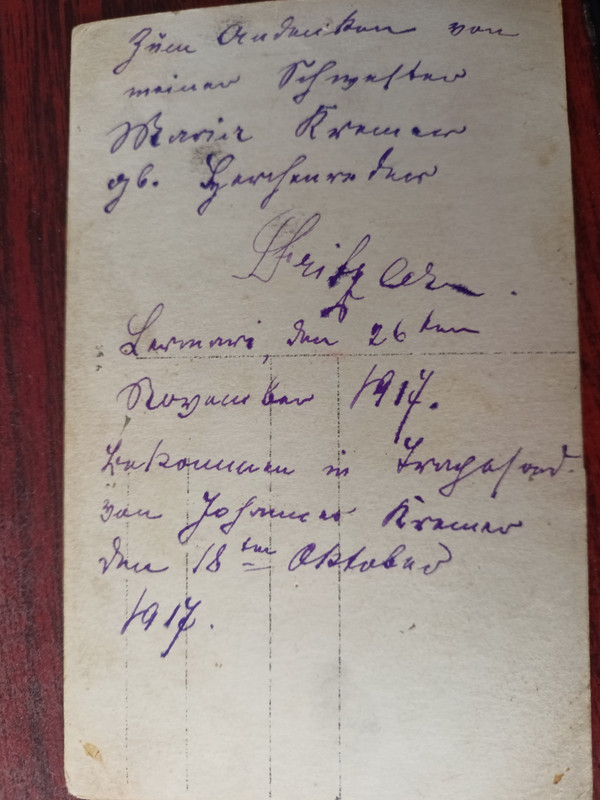 Zum Andenken von
meiner Schwester
Maria Kremer
gb. Herchenreder
Fritzler
den 26ten
November 1917.
bekommen in
von Johannes Kremer
den 18ten Oktober
1917.